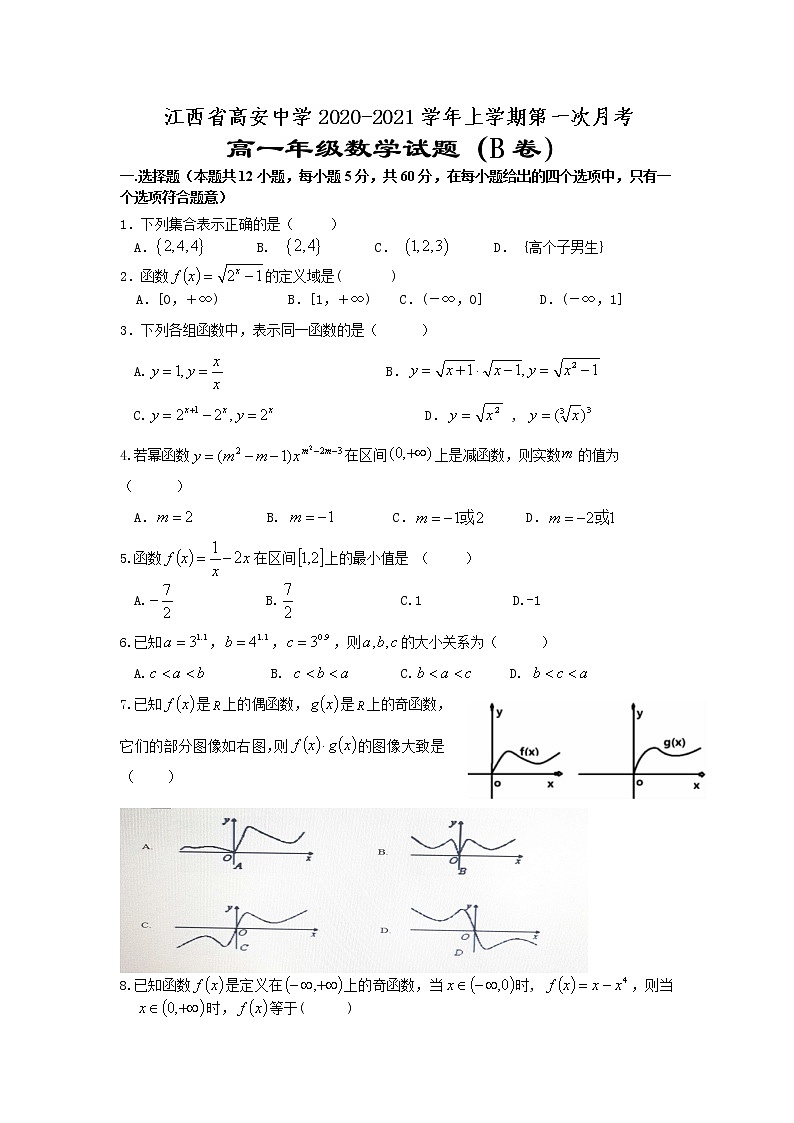 江西省高安中学 2020-2021 学年上学期第一次月考
高一年级数学试题（B 卷）
一.选择题（本题共 12 小题，每小题 5 分，共 60 分，在每小题给出的四个选项中，只有一
个选项符合题意）
1．下列集合表示正确的是（ ）
A．{2,4,4} B． {2,4} C． (1,2,3) D． {高个子男生}
2．函数 f(x)=√(2^x−1) 的定义域是( )
A．[0，+∞) B．[1，+∞) C．(－∞,0] D．(－∞,1]
3．下列各组函数中，表示同一函数的是（ ）
A. y=1, y=x/x B. y=√(x+1)·√(x−1), y=√(x²−1)
C. y=2^(x+1)−2^x, y=2^x D. y=√(x²) , y=(∛x)³
4.若幂函数 y=(m²−m−1)x^(m²−2m−3) 在区间 (0,+∞) 上是减函数，则实数 m 的值为
（ ）
A. m=2 B. m=−1 C. m=−1或2 D. m=−2或1
5.函数 f(x)=1/x−2x 在区间[1,2]上的最小值是 （ ）
A.−7/2 B.7/2 C.1 D.-1
6.已知 a=3^1.1， b=4^1.1， c=3^0.9，则 a,b,c 的大小关系为（ ）
A. c<a<b B. c<b<a C. b<a<c D. b<c<a
7.已知 f(x) 是 R 上的偶函数， g(x) 是 R 上的奇函数，
它们的部分图像如右图,则 f(x)·g(x) 的图像大致是
（ ）
y f(x) o x y g(x) o x
A. y O x A B. y O x B
C. y O x C D. y O x D
8.已知函数 f(x) 是定义在 (−∞,+∞) 上的奇函数，当 x∈(−∞,0) 时， f(x)=x−x⁴，则当
x∈(0,+∞) 时， f(x) 等于( )